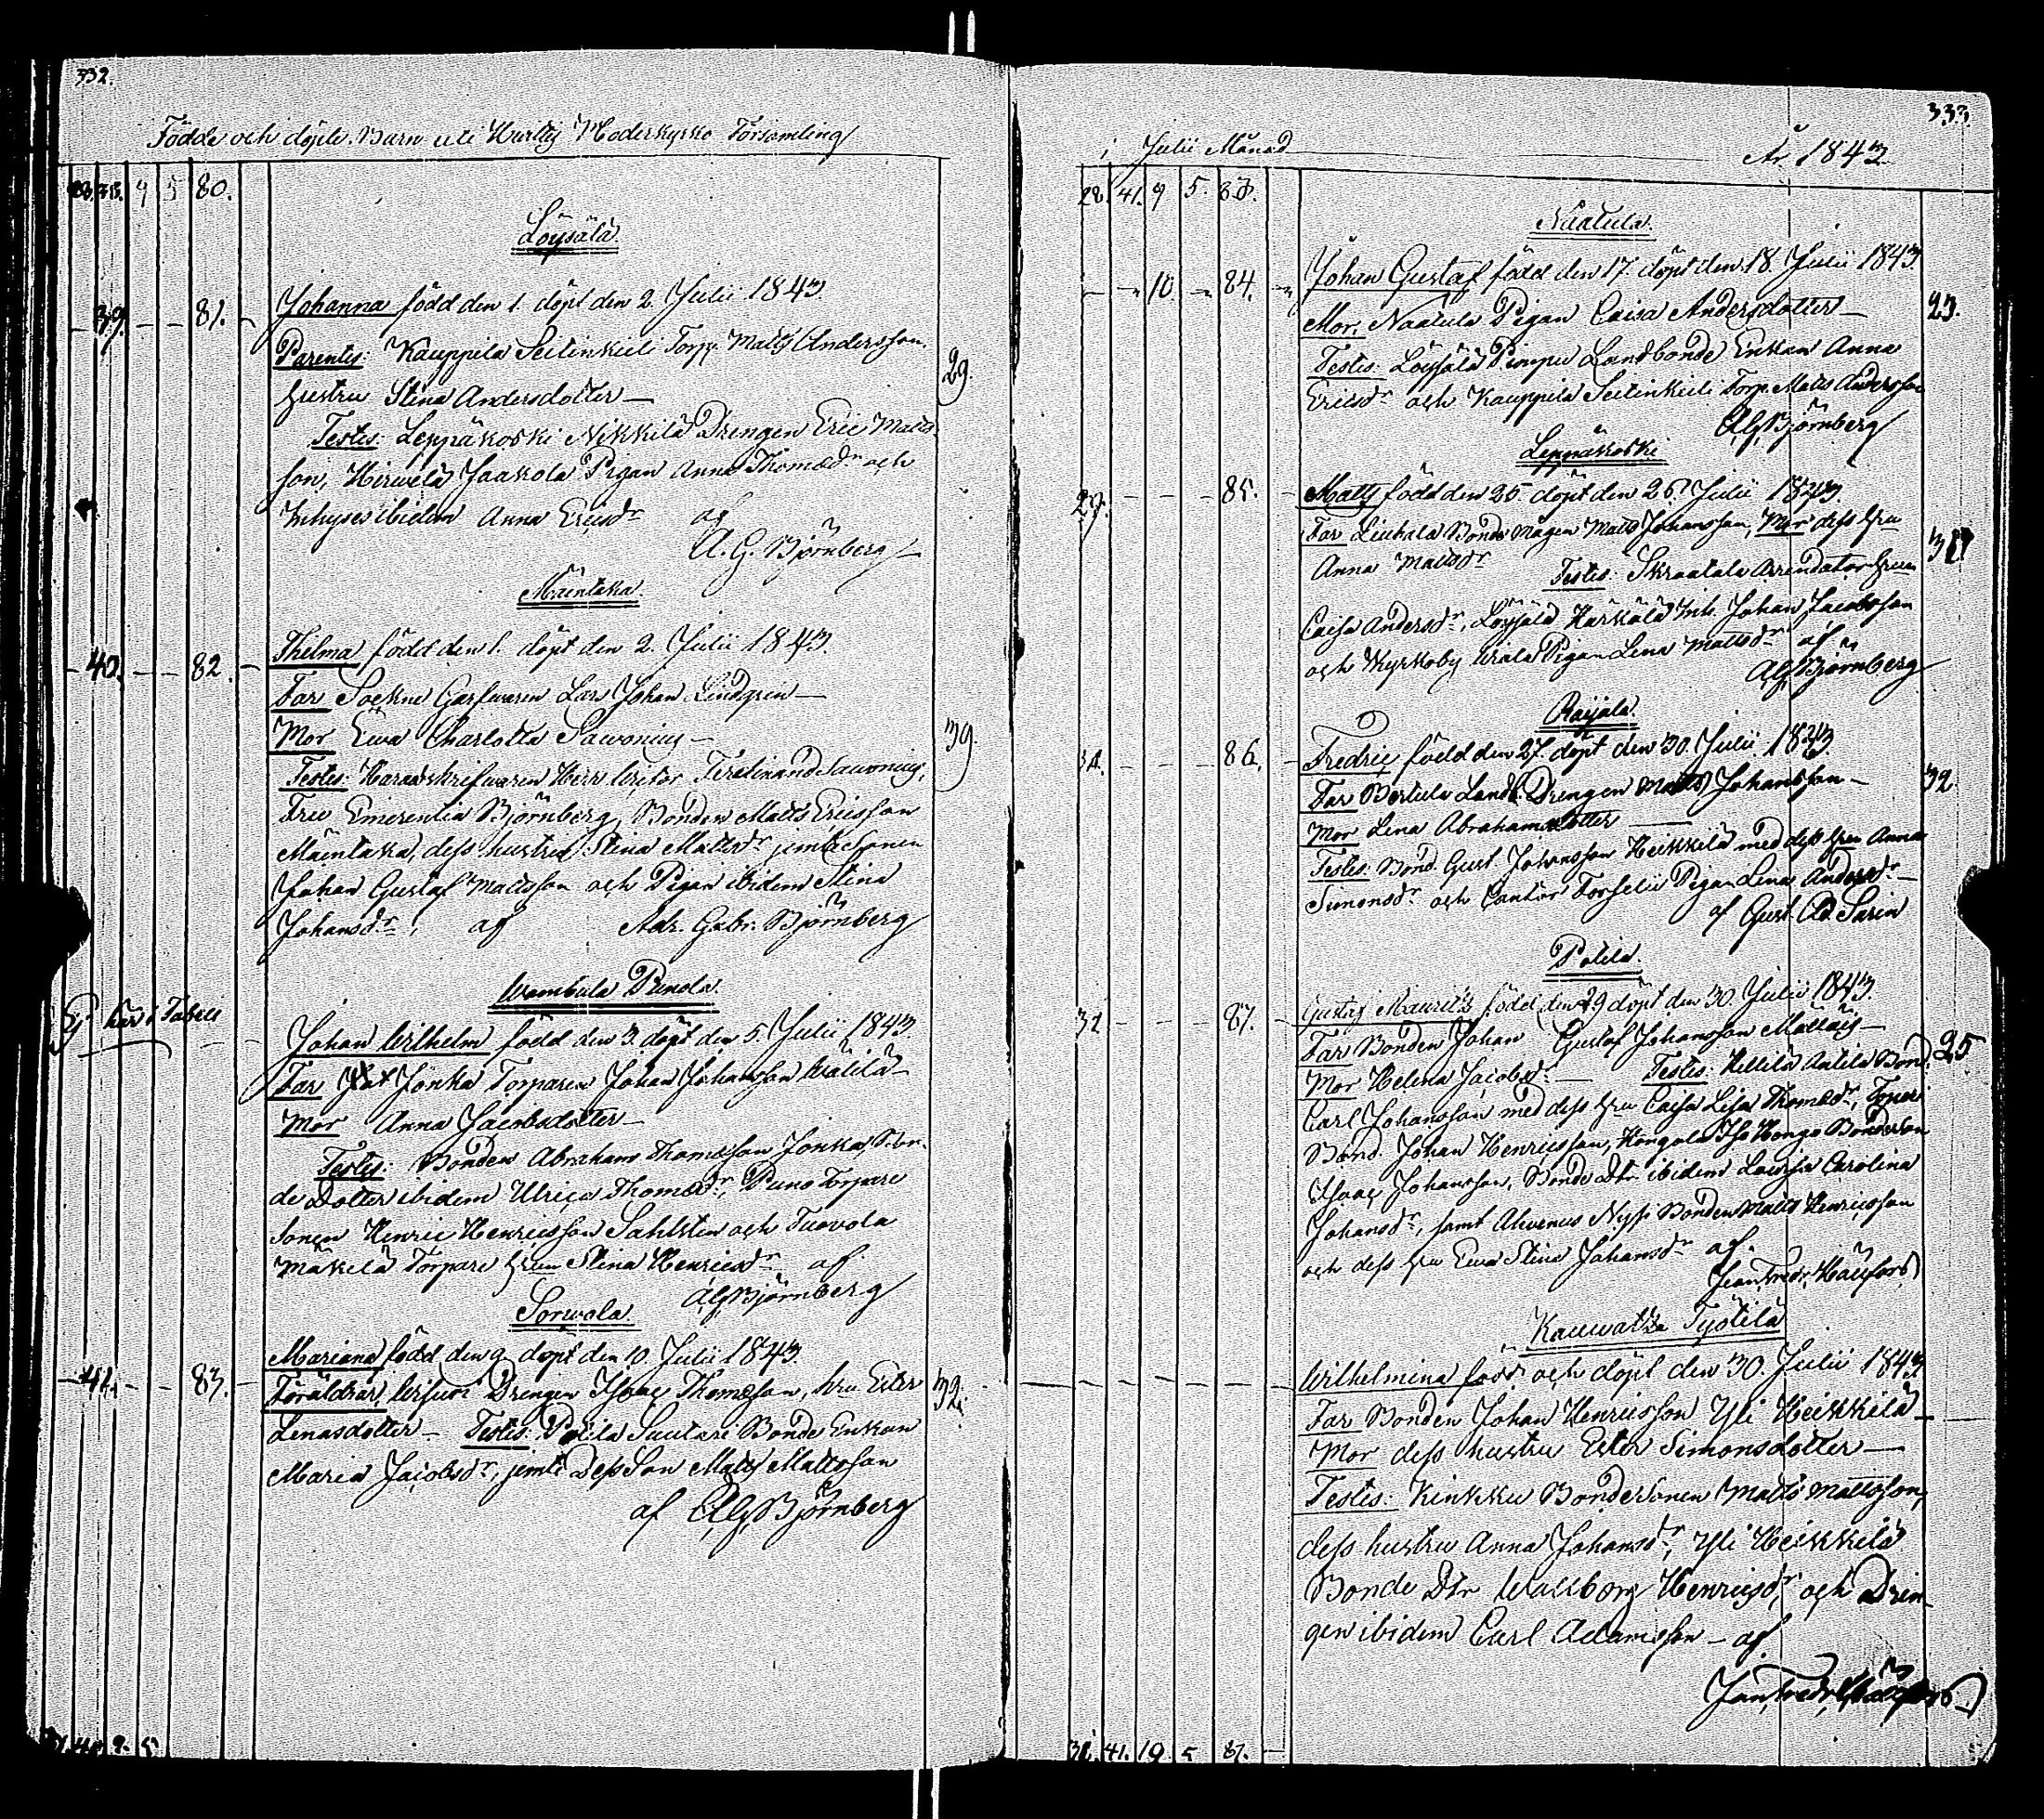 332.
Födde och döpte Barn uti Huittis Moderkyrko Församling
9 5 80.
Löysälä.
39. 81. Johanna född den 1. döpt den 2. Julii 1843.
Parentes: Kauppila Seitinkieli Torp. Matts Andersson,
hustru Stina Andersdotter 29.
Testes: Leppäkoski Nikkilä Drengen Eric Matts
son, Hirwelä Jaakola Pigan Anna Thomædr och
Inhyses ibidem Anna Ericsdr af
A. G. Björnberg
Mäentaka.
40. 82. Thelma född den 1. döpt den 2. Julii 1843.
Far Sockne Garfwaren Lars Johan Lindgren
Mor Ewa Charlotta Sawonius 39.
Testes: Häradsskrifwaren Herr Victor Ferdinand Sawonius,
Fru Emerentia Björnberg, Bonden Matts Ericsson
Mäentaka, dess hustru Stina Mattsdr jemte Sonen
Johan Gustaf Mattsson och Pigan ibidem Stina
Johansdr, af Adr. Gabr. Björnberg
Wambula Punola.
Ej här i Tabell
Johan Wilhelm född den 3. döpt den 5. Julii 1843.
Far Jonka Torparen Johan Johansson Wälilä
Mor Anna Jacobsdotter
Testes: Bonden Abraham Thomasson Jonka, Bon-
de Dotter ibidem Ulrica Thomædr, Puno Torpare
Sonen Henric Henricsson Sahlsten och Suovola
Mäkelä Torpare hrun Stina Henricsdr af
AGBjörnberg
Sorwola.
41. 83. Mariana född den 9. döpt den 10. Julii 1843.
Föräldrar, Drengen Isaac Thomasson, hru Ester 32.
Linasdotter Testes: Polila Suutari Bonde Enkan
Maria Jacobsdr, jemte Dess Son Matts Mattsson
af AGBjörnberg
9. 5
333.
i Julii Månad År 1843
28. 41. 9 5. 83.
Naatula.
10. 84. Johan Gustaf född den 17. döpt den 18. Julii 1843.
Mor. Naatula Pigan Caisa Andersdotter 23.
Testes: Löysälä Pimpu Landbonde Enkan Anna
Ericsdr och Kauppila Seitinkieli Torp. Matts Andersson
AGBjörnberg
Leppäkoski
29. 85. Matts född den 25 döpt den 26. Julii 1843.
Far Liuhala Bonde Mågen Matts Johansson, Mor dess hru
Anna Mattsdr Testes: Skraatala Arrendator hrun
Caisa Andersdr, Löysälä Härkälä Inh. Johan Jacobsson
och Kyrkoby Pigan Lena Mattsdr af
AGBjörnberg
Raijala.
86. Fredric född den 27. döpt den 30. Julii 1843
Far Bertula Landb. Drengen Matts Johansson 32
Mor Lena Abrahamsdotter
Testes: Bond. Gust. Johansson Heikkilä med dess hru Anna
Simonsdr och Cantor Forselii Pigan Lena Andersdr
af Gust. Ad. Sarin
Polila.
31 87. Gustaf Mauritz född den 29 döpt den 30. Julii 1843.
Far Bonden Johan Gustaf Johansson Mattais 25
Mor Helena Jacobsdr Testes: Kellilä Anttila Bond.
Carl Johansson med dess hru Caisa Lisa Thomædr,
Bond. Johan Henricsson, Hongola Iso Hongo Bondeson
Isaac Johansson, Bonde Dtr ibidem Lowisa Carolina
Johansdr, samt Ahvenus Nyssi Bonden Matts Henricsson
och dess hru Ewa Stina Johansdr af.
Kauwatza Työtilä
Wilhelmina född och döpt den 30. Julii 1843
Far Bonden Johan Henricsson Yli Heikkilä
Mor dess hustru Ester Simonsdotter
Testes: Kinkku Bondesonen Matts Mattsson,
dess hustru Anna Johansdr, Yli Heikkilä
Bonde Dtr Wallborg Henricsdr, och Dren-
gen ibidem Carl Adamsson af
41. 10 5 87.